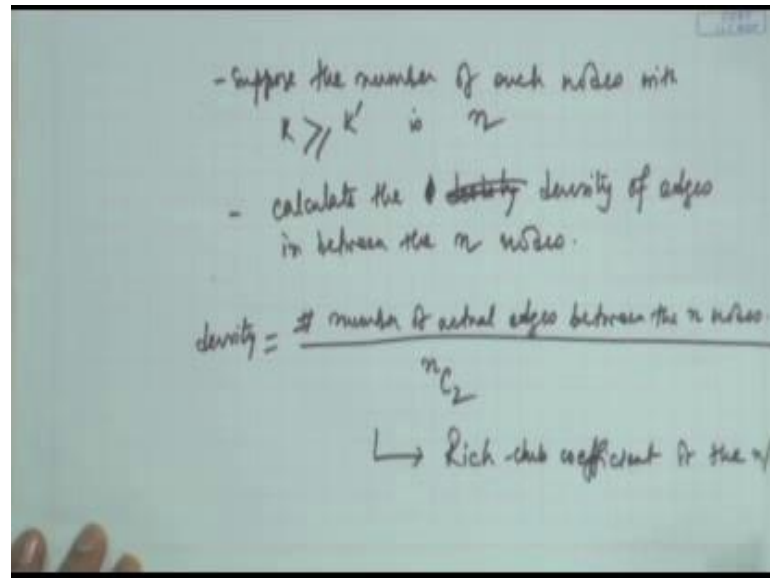 - Suppose the number of such nodes with
K ⩾ K' is n
- calculate the density density of edges
in between the n nodes.
density = # number of actual edges between the n nodes.
ⁿC₂
↳ Rich-club coefficient of the n/